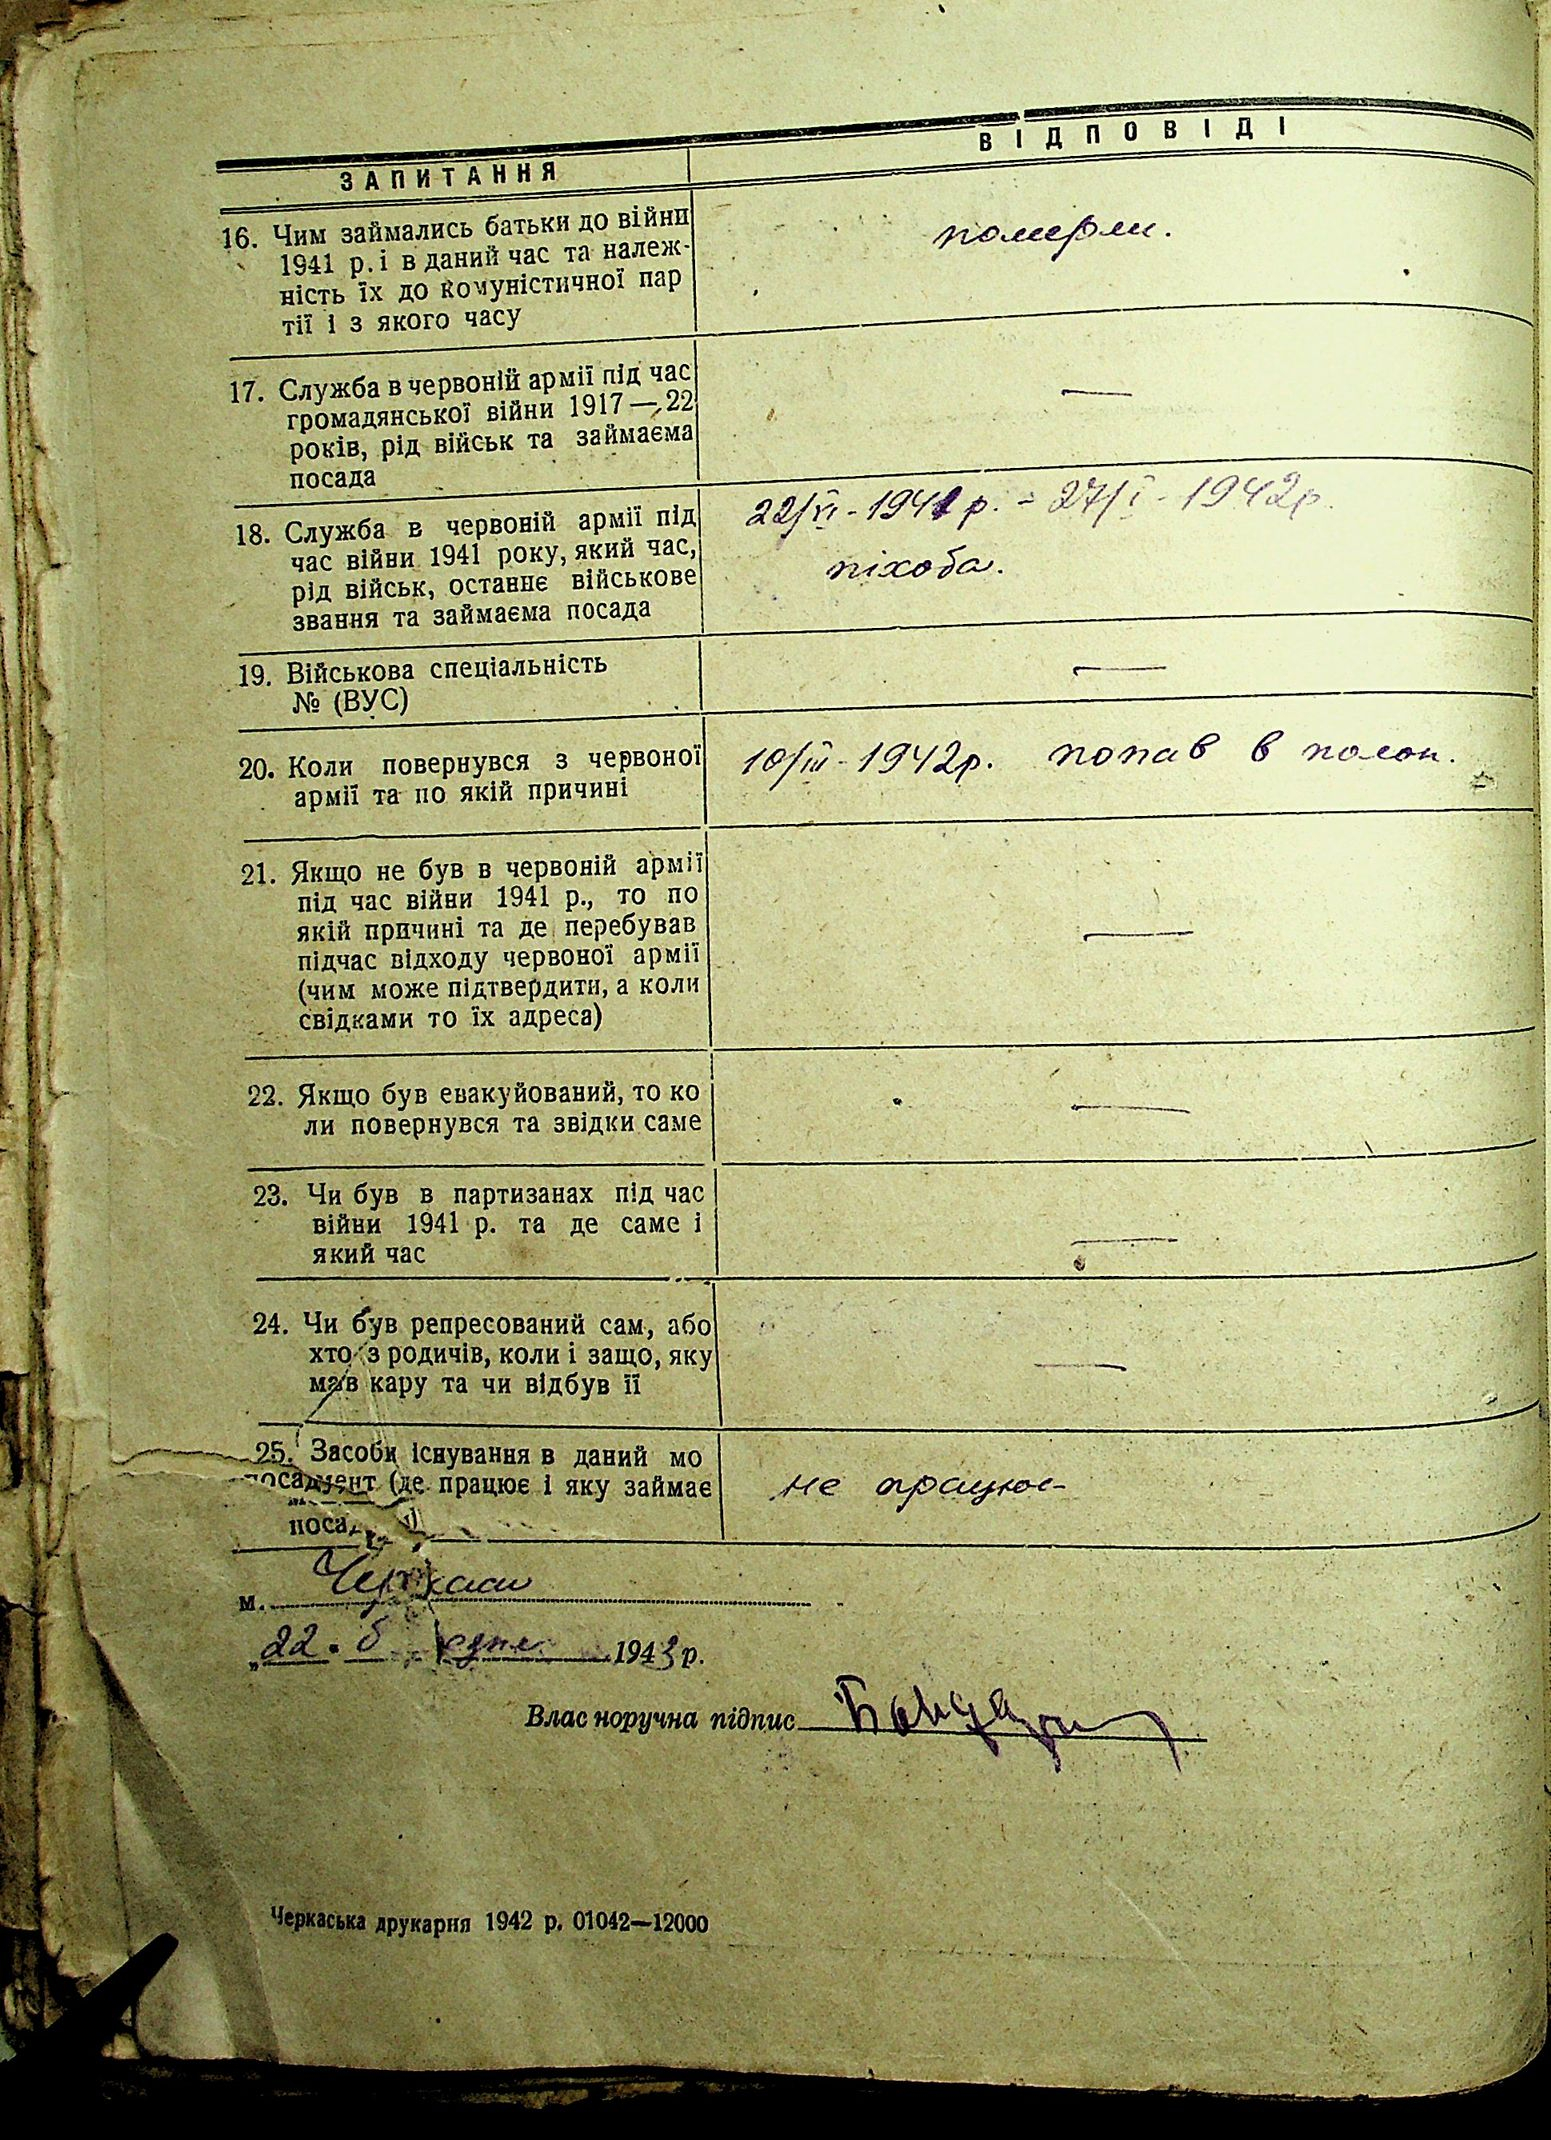 ЗАПИТАННЯ
ВІДПОВІДІ
16. Чим займались батьки до війни
1941 р. і в даний час та належ-
ність їх до комуністичної пар
тії і з якого часу
померли.
17. Служба в червоній армії під час
громадянської війни 1917—22
років, рід військ та займаєма
посада
—
18. Служба в червоній армії під
час війни 1941 року, який час,
рід військ, останнє військове
звання та займаєма посада
22/VI - 1941 р. - 27/I - 1942р.
піхоба.
19. Військова спеціальність
№ (ВУС)
—
20. Коли повернувся з червоної
армії та по якій причині
10/III - 1942р. попав в полон.
21. Якщо не був в червоній армії
під час війни 1941 р., то по
якій причині та де перебував
підчас відходу червоної армії
(чим може підтвердити, а коли
свідками то їх адреса)
—
22. Якщо був евакуйований, то ко
ли повернувся та звідки саме
—
23. Чи був в партизанах під час
війни 1941 р. та де саме і
який час
—
24. Чи був репресований сам, або
хто з родичів, коли і защо, яку
мав кару та чи відбув її
—
25. Засоби існування в даний мо
мент (де працює і яку займає
поса
не працює
м. Черкаси
„22" 1943 р.
Власноручна підпис
Черкаська друкарня 1942 р. 01042—12000